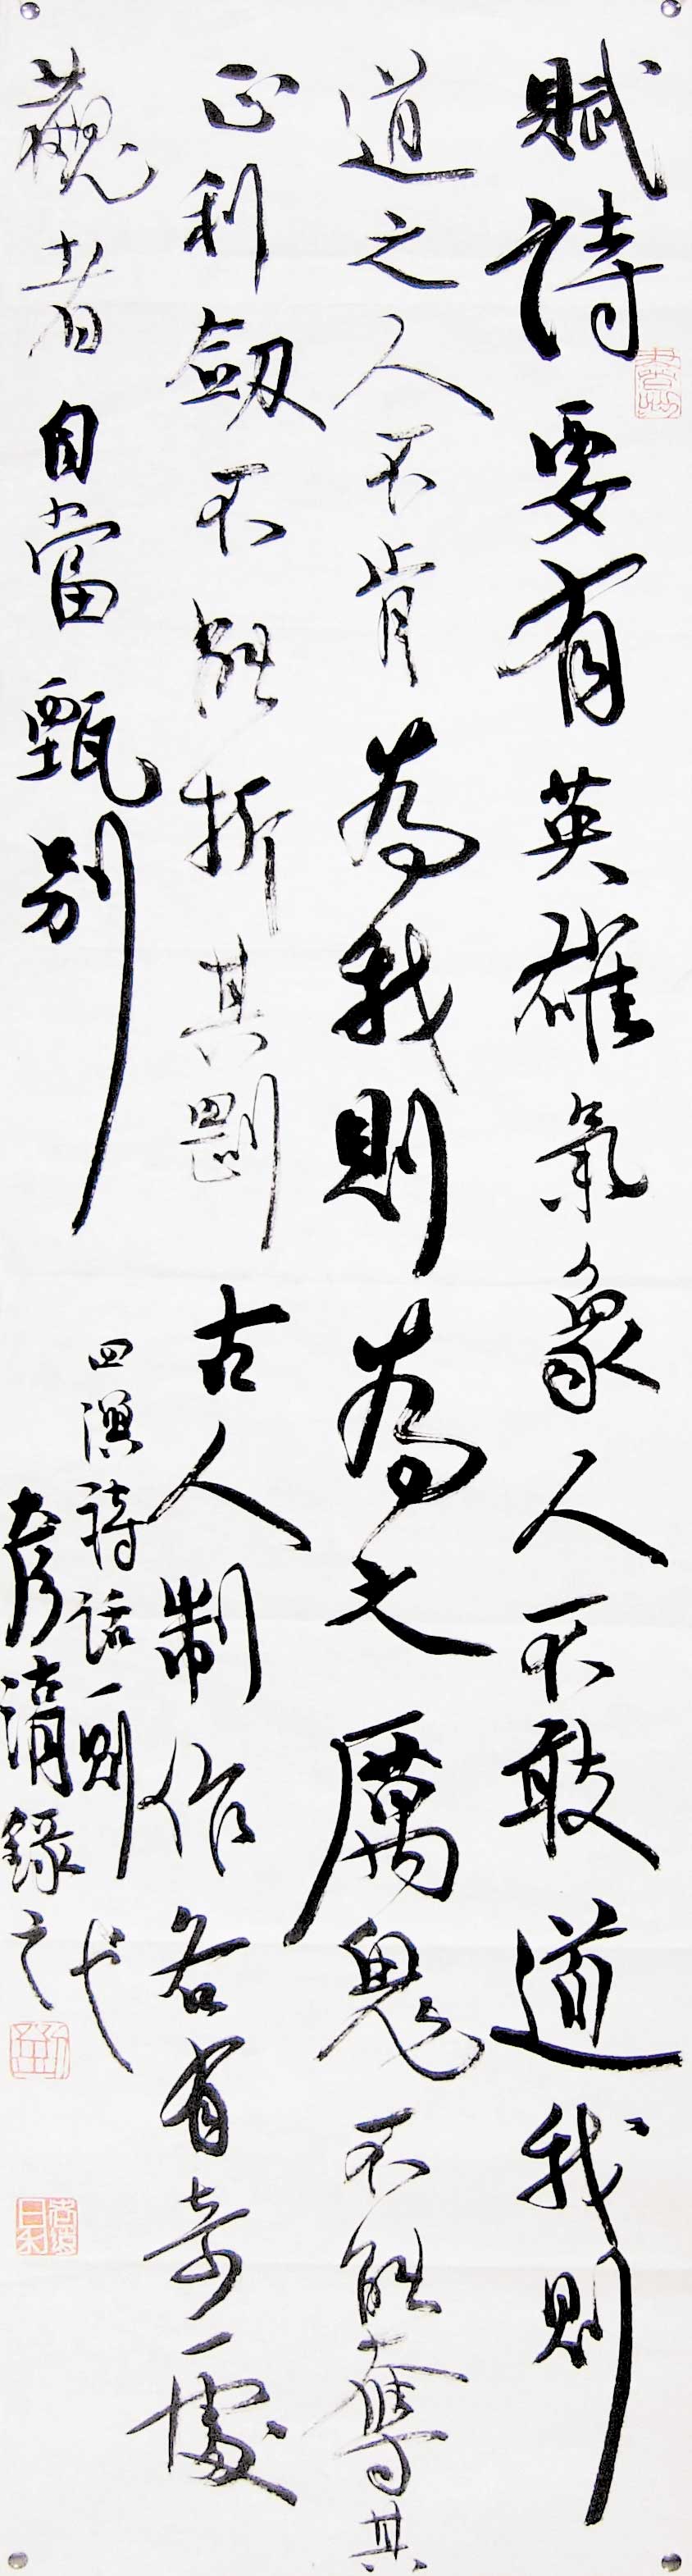 賦詩要有英雄氣象人不敢道我則
道之人不肯為我則為之厲鬼不能奪其
正利劔不能折其剛古人制作各有奇處
觀者自當甄別
四溟詩話一則
彥清錄之